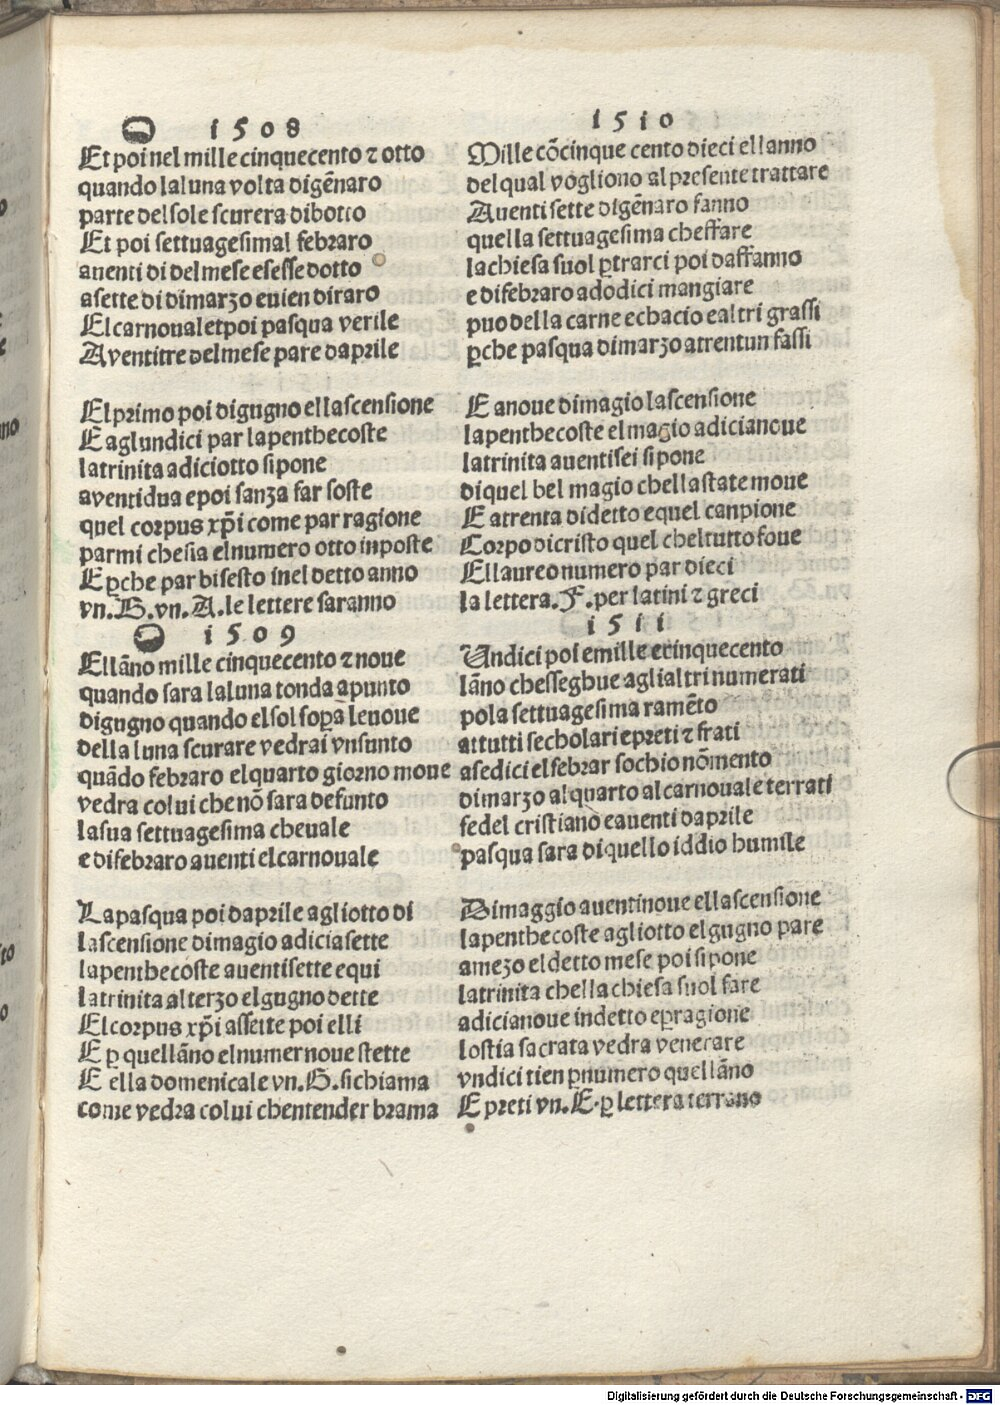 1508
Et poi nel mille cinquecento ⁊ otto
quando laluna volta digẽnaro
parte delsole scurera dibotto
Et poi settuagesimal febraro
auenti di delmese esesse dotto
asette di dimarzo euien diraro
Elcarnoualetpoi pasqua verile
Aventitre delmese pare daprile
Elprimo poi digugno ellascensione
E aglundici par lapenthecoste
latrinita adiciotto sipone
aventidua epoi sanza far soste
quel corpus xp̃i come par ragione
parmi chesia elnumero otto inposte
E ꝑche par bisesto inel detto anno
vn. B. vn. A. le lettere saranno
1509
Ellãno mille cinquecento ⁊ noue
quando sara laluna tonda apunto
digugno quando elsol sopra leuoue
della luna scurare vedrai vnsunto
quãdo febraro elquarto giorno moue
vedra colui che nõ sara defunto
lasua settuagesima cheuale
e difebraro auenti elcarnouale
Lapasqua poi daprile agliotto di
lascensione dimagio adiciasette
lapenthecoste auentisette equi
latrinita alterzo elgugno dette
Elcorpus xp̃i assette poi elli
E ꝑ quellãno elnumer noue stette
E ella domenicale vn. G. sichiama
come vedra colui chentender brama
1510
Mille cõcinque cento dieci ellanno
del qual vogliono al presente trattare
Auenti sette digẽnaro fanno
quella settuagesima cheffare
lachiesa suol ꝑtrarci poi daffanno
e difebraro adodici mangiare
puo della carne ecbacio ealtri grassi
ꝑche pasqua dimarzo atrentun fassi
E anoue dimagio lascensione
lapenthecoste elmagio adicianoue
latrinita auentisei sipone
diquel bel magio chellastate moue
E atrenta didetto equel canpione
Corpo dicristo quel cheltutto foue
Ellaureo numero par dieci
la lettera. F. per latini ⁊ greci
1511
Undici poi emille ecinquecento
lãno chesseghue aglialtri numerati
pola settuagesima ramẽto
attutti secholari epreti ⁊ frati
asedici elfebrar sochio nõmento
dimarzo alquarto alcarnouale terrati
fedel cristiano eauenti daprile
pasqua sara diquello iddio humile
Dimaggio auentinoue ellascensione
lapenthecoste agliotto elgugno pare
amezo eldetto mese poi sipone
latrinita chella chiesa suol fare
adicianoue indetto eꝑragione
lostia sacrata vedra venerare
vndici tien ꝑnumero quellãno
E preti vn. E. ꝑ lettera terrano
Digitalisierung gefördert durch die Deutsche Forschungsgemeinschaft - DFG